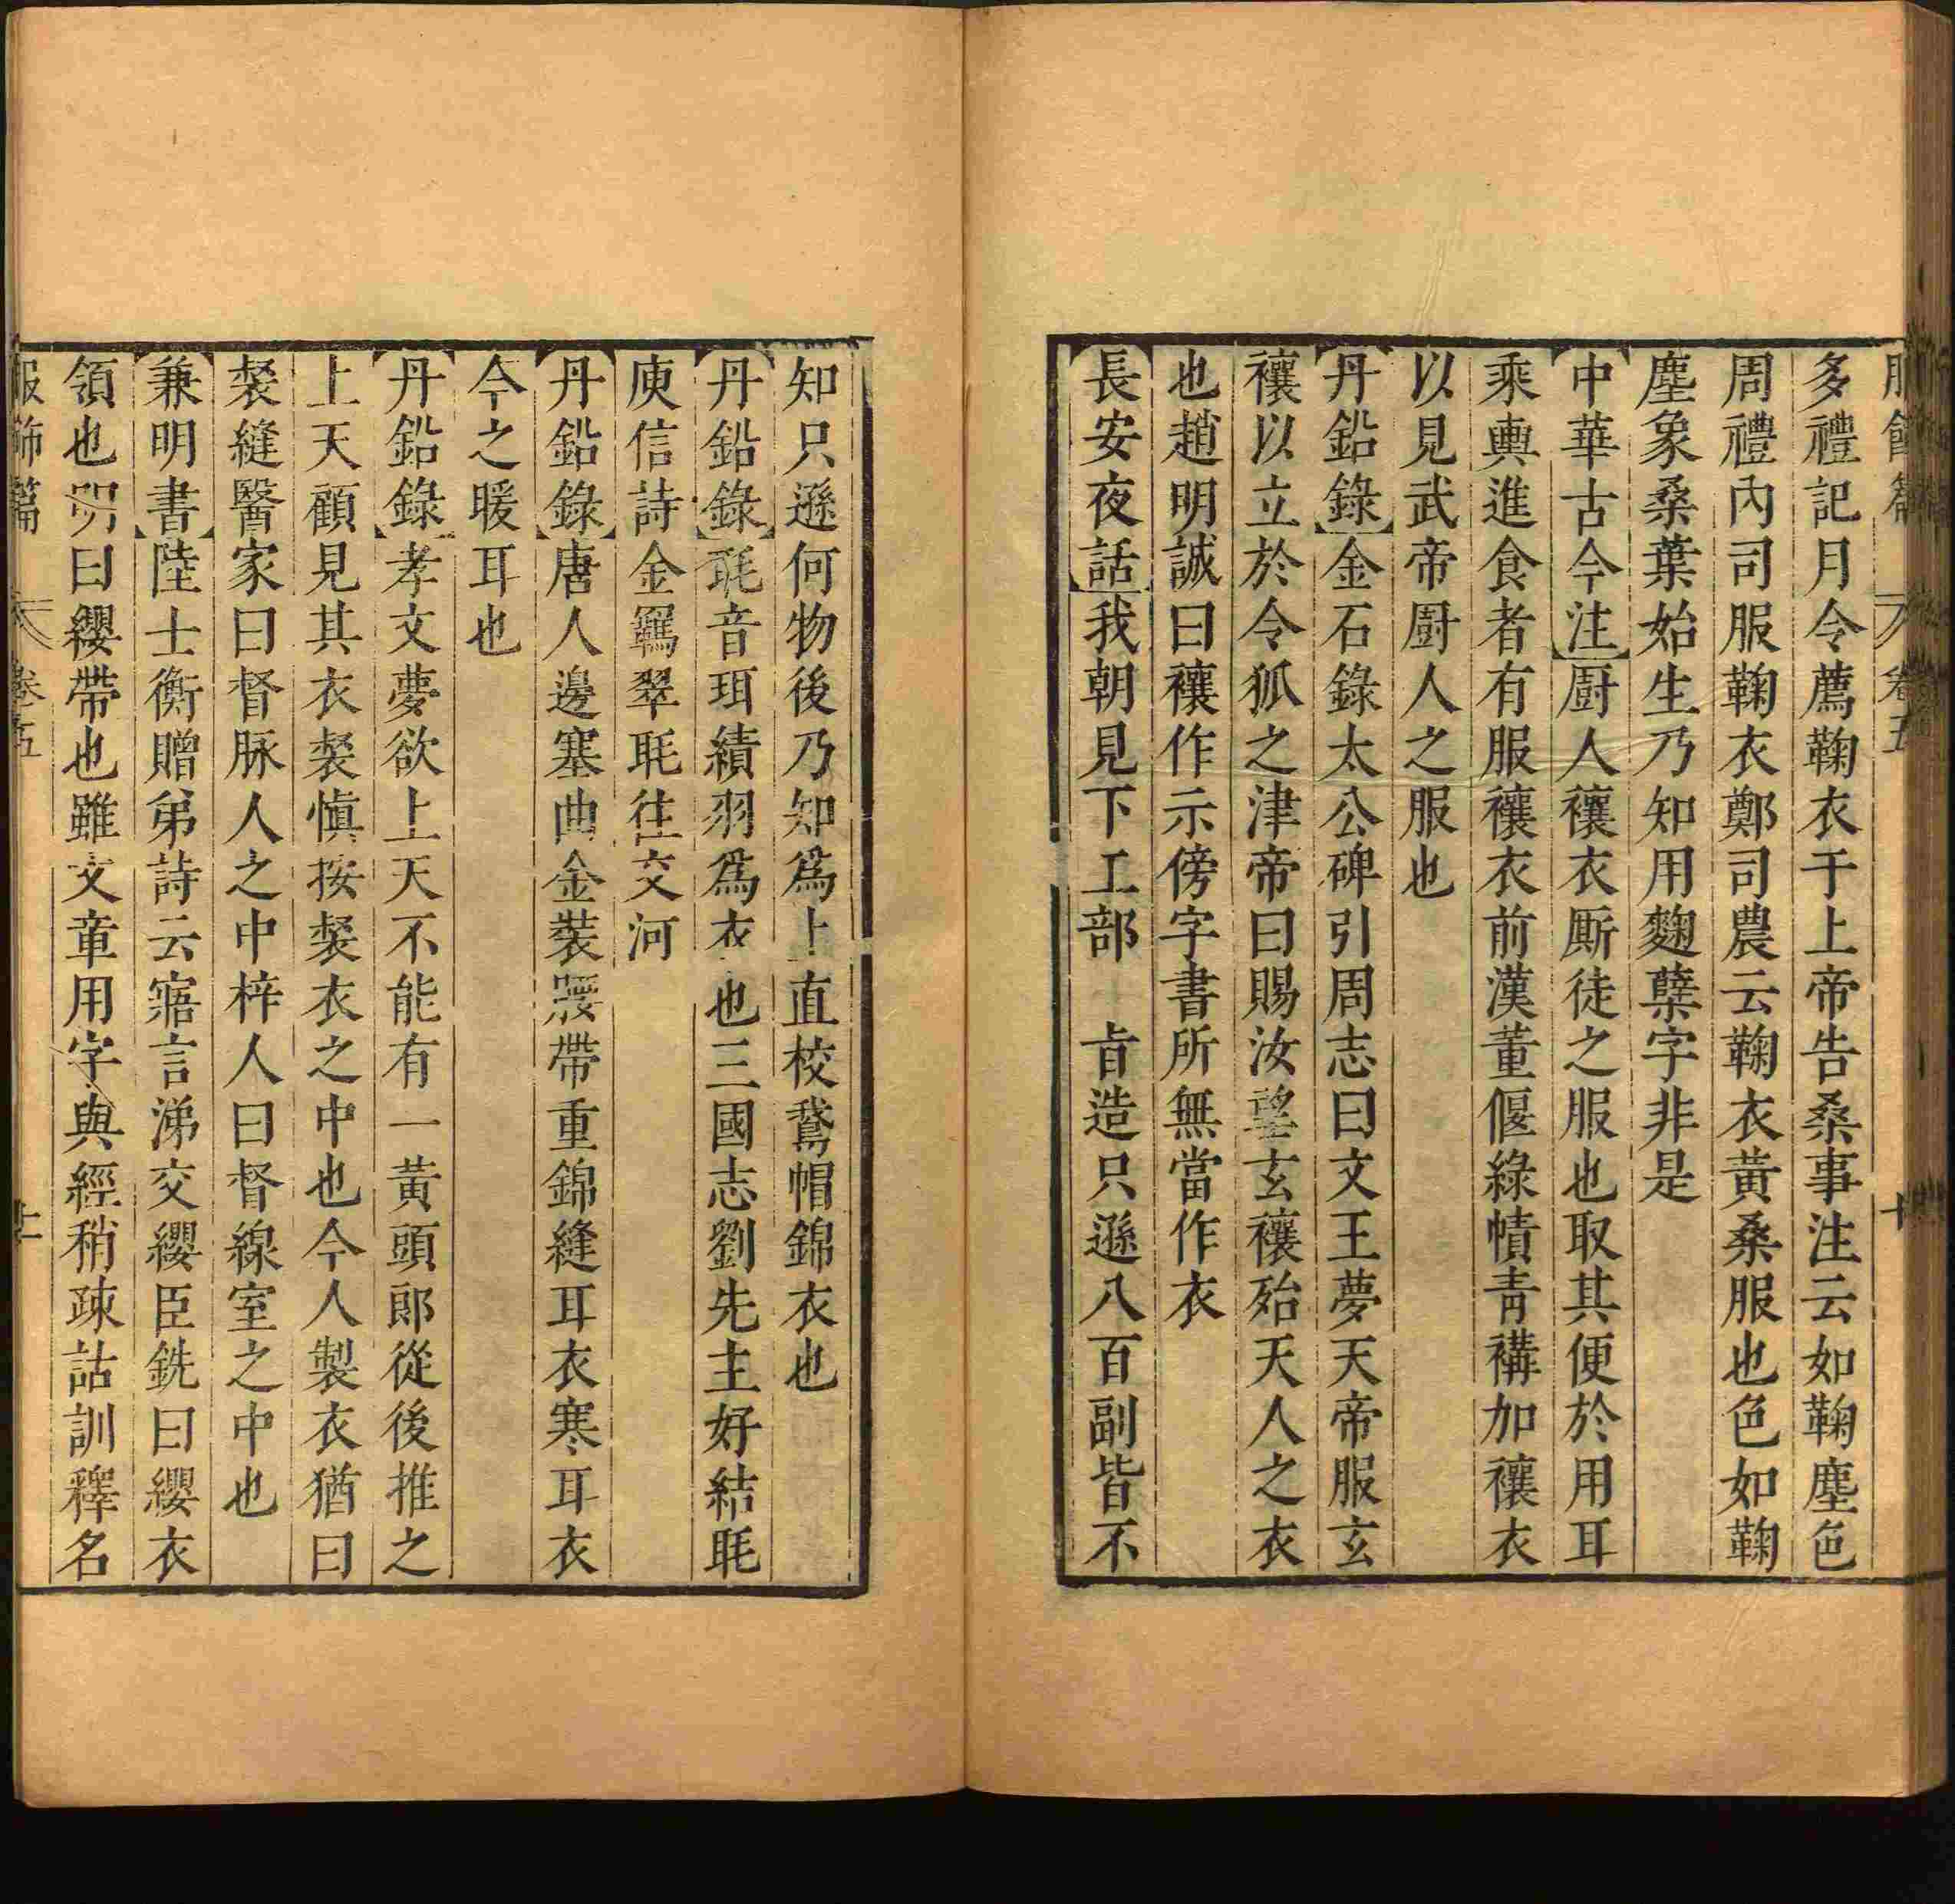 服飾篇 卷五 十
多禮記月令薦鞠衣于上帝告桑事注云如鞠塵色
周禮內司服鞠衣鄭司農云鞠衣黃桑服也色如鞠
塵象桑葉始生乃知用麴櫱字非是
【中華古今注】厨人襐衣厮徒之服也取其便於用耳
乘輿進食者有服襐衣前漢董偃綠幘青褠加襐衣
以見武帝厨人之服也
【丹鉛錄】金石錄太公碑引周志曰文王夢天帝服玄
襐以立於令狐之津帝曰賜汝望玄襐殆天人之衣
也趙明誠曰襐作示傍字書所無當作衣
【長安夜話】我朝見下工部 旨造只遜八百副皆不
知只遜何物後乃知為上直校鵞帽錦衣也
【丹鉛錄】毦音珥績羽為衣也三國志劉先主好結毦
庾信詩金羈翠毦往交河
【丹鉛錄】唐人邊塞曲金裝腰帶重錦縫耳衣寒耳衣
今之暖耳也
【丹鉛錄】孝文夢欲上天不能有一黃頭郎從後推之
上天顧見其衣裻慎按裻衣之中也今人製衣猶曰
裻縫醫家曰督脉人之中梓人曰督線室之中也
【兼明書】陸士衡贈弟詩云寤言涕交纓臣銑曰纓衣
領也明曰纓帶也雖文章用字與經稍疎詁訓釋名
服飾篇 卷五